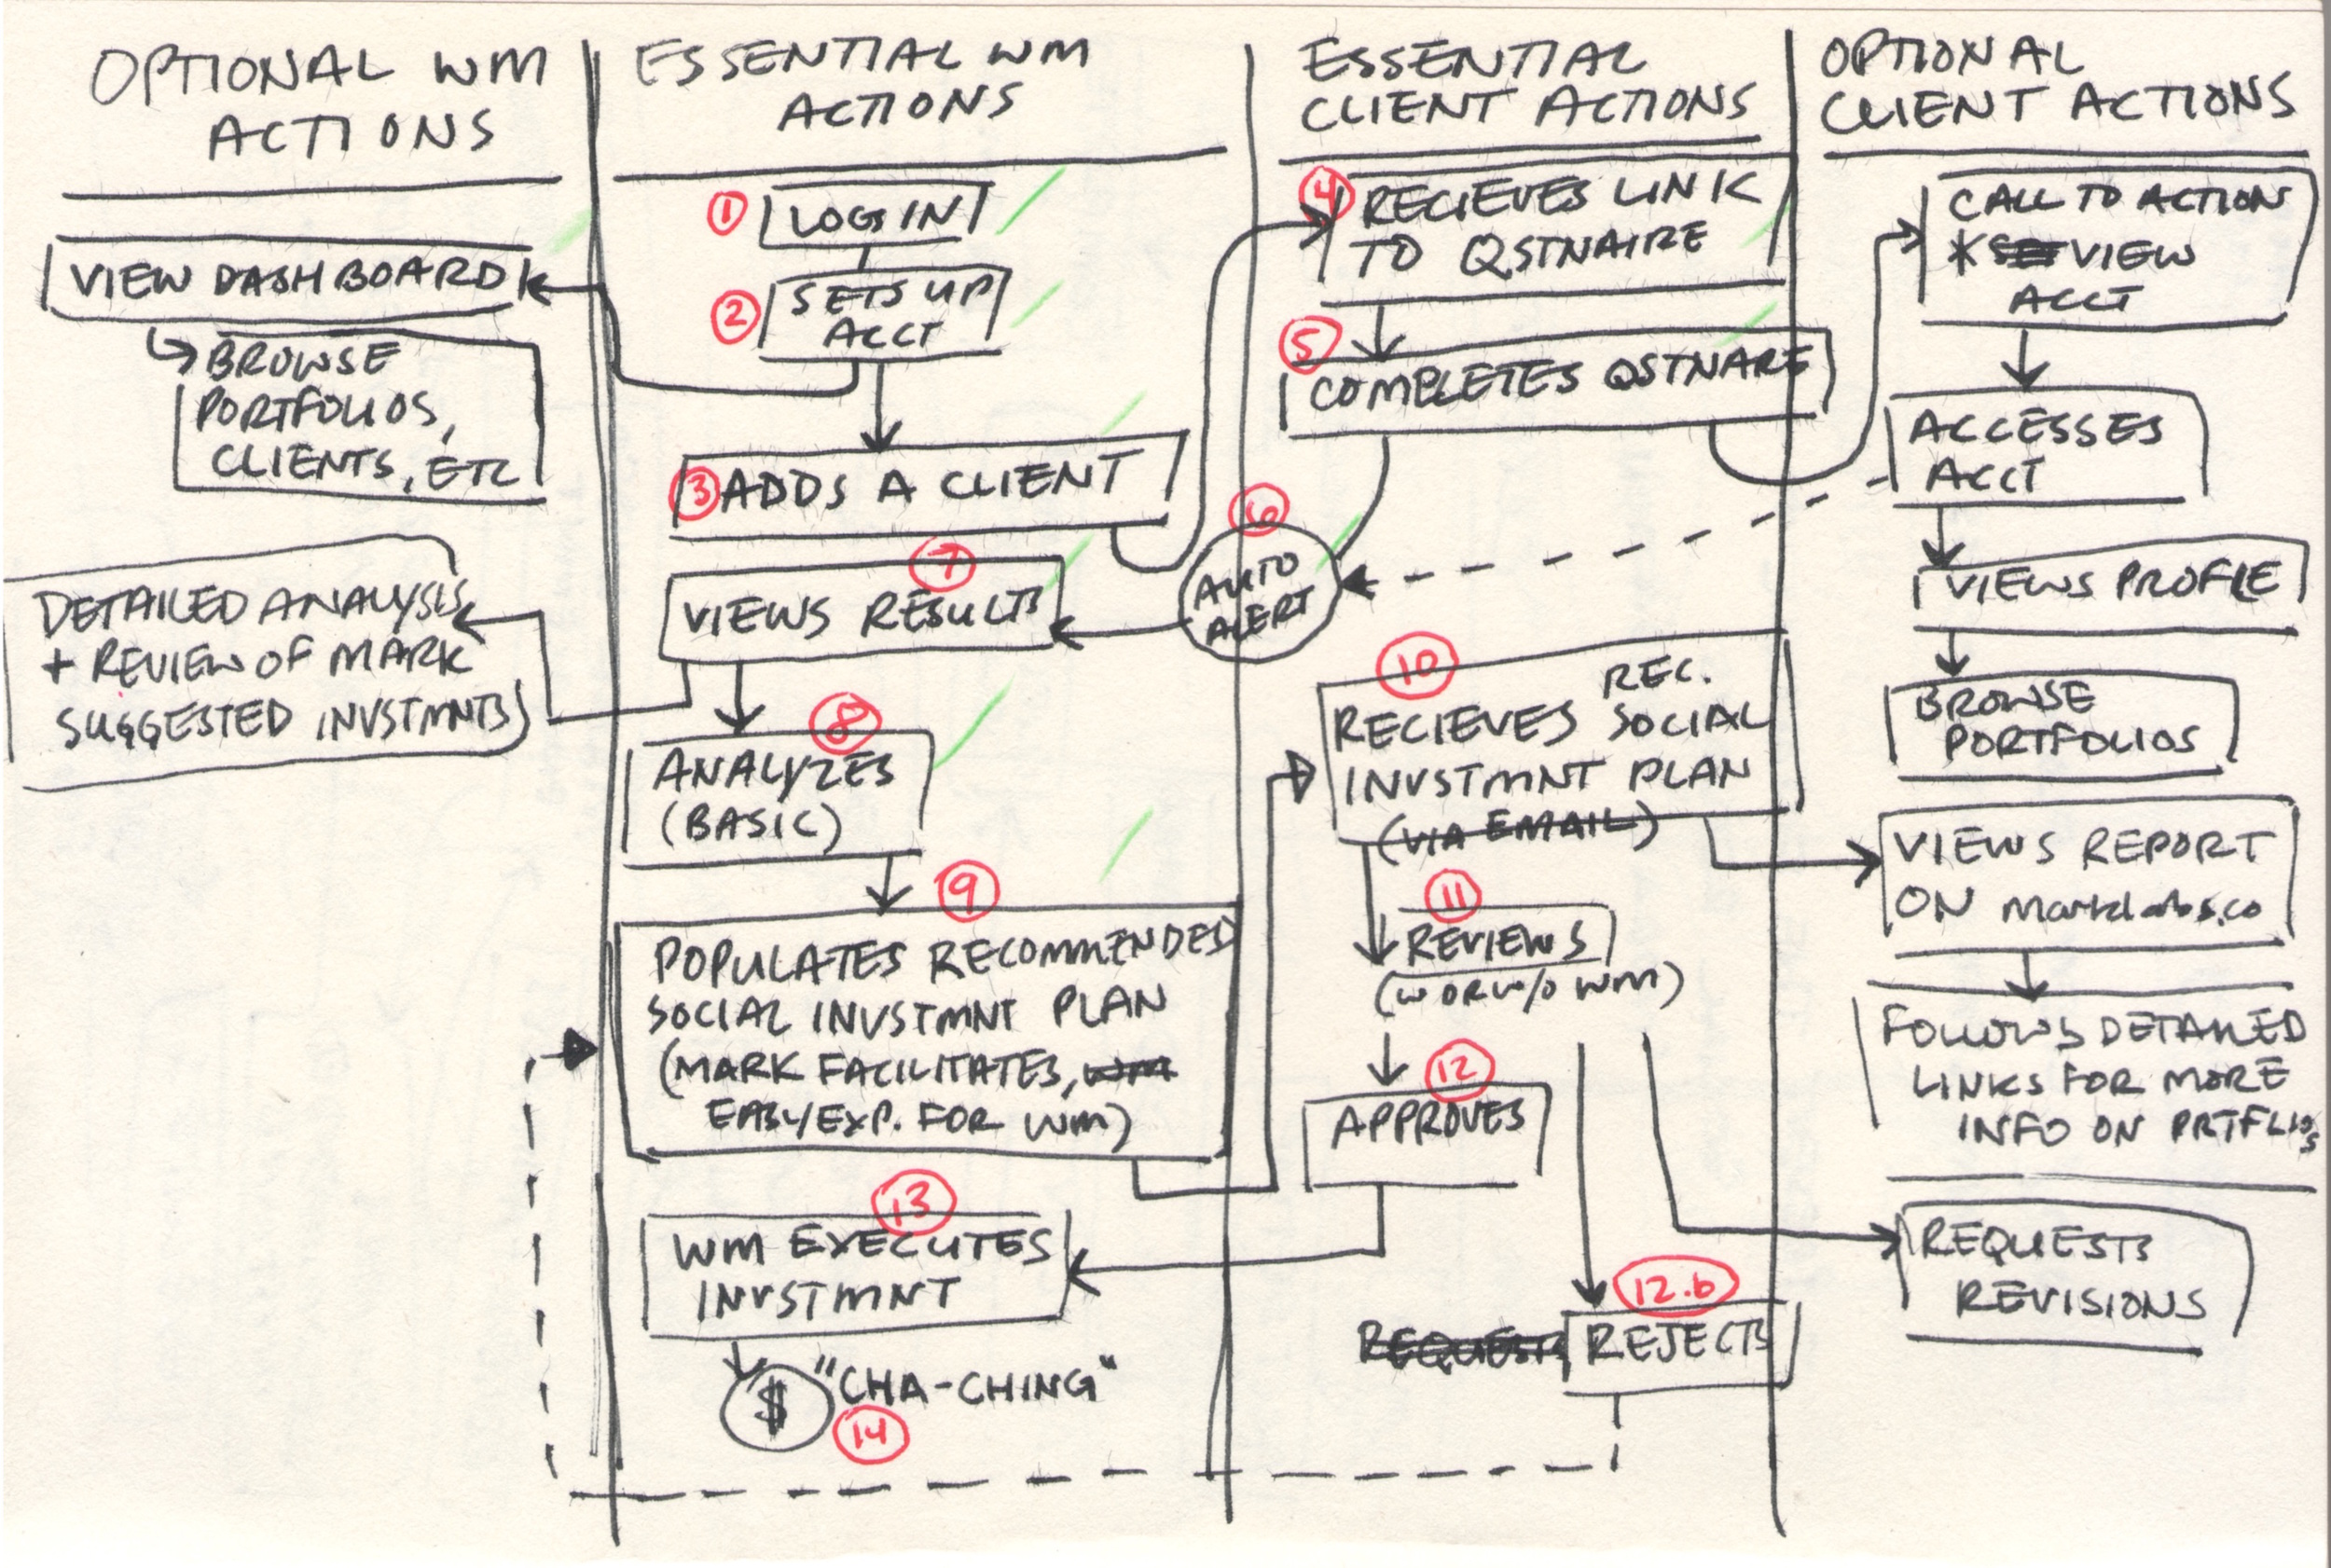 OPTIONAL WM
ACTIONS
VIEW DASHBOARD
BROWSE
PORTFOLIOS,
CLIENTS, ETC
DETAILED ANALYSIS
+ REVIEW OF MARK
SUGGESTED INVSTMNTS
ESSENTIAL WM
ACTIONS
1
LOGS IN
2
SETS UP
ACCT
3
ADDS A CLIENT
7
VIEWS RESULTS
8
ANALYZES
(BASIC)
9
POPULATES RECOMMENDED
SOCIAL INVSTMNT PLAN
(MARK FACILITATES, WM
EASY EXP. FOR WM)
13
WM EXECUTES
INVSTMNT
$ "CHA-CHING"
14
6
AUTO
ALERT
ESSENTIAL
CLIENT ACTIONS
4
RECIEVES LINK
TO QSTNAIRE
5
COMPLETES QSTNARE
10
REC.
RECIEVES SOCIAL
INVSTMNT PLAN
(VIA EMAIL)
11
REVIEWS
(W OR W/O WM)
12
APPROVES
12.b
REQUESTS REJECTS
OPTIONAL
CLIENT ACTIONS
CALL TO ACTION
* VIEW
ACCT
ACCESSES
ACCT
VIEWS PROFILE
BROWSE
PORTFOLIOS
VIEWS REPORT
ON marklabs.co
FOLLOWS DETAILED
LINKS FOR MORE
INFO ON PRTFLIOS
REQUESTS
REVISIONS